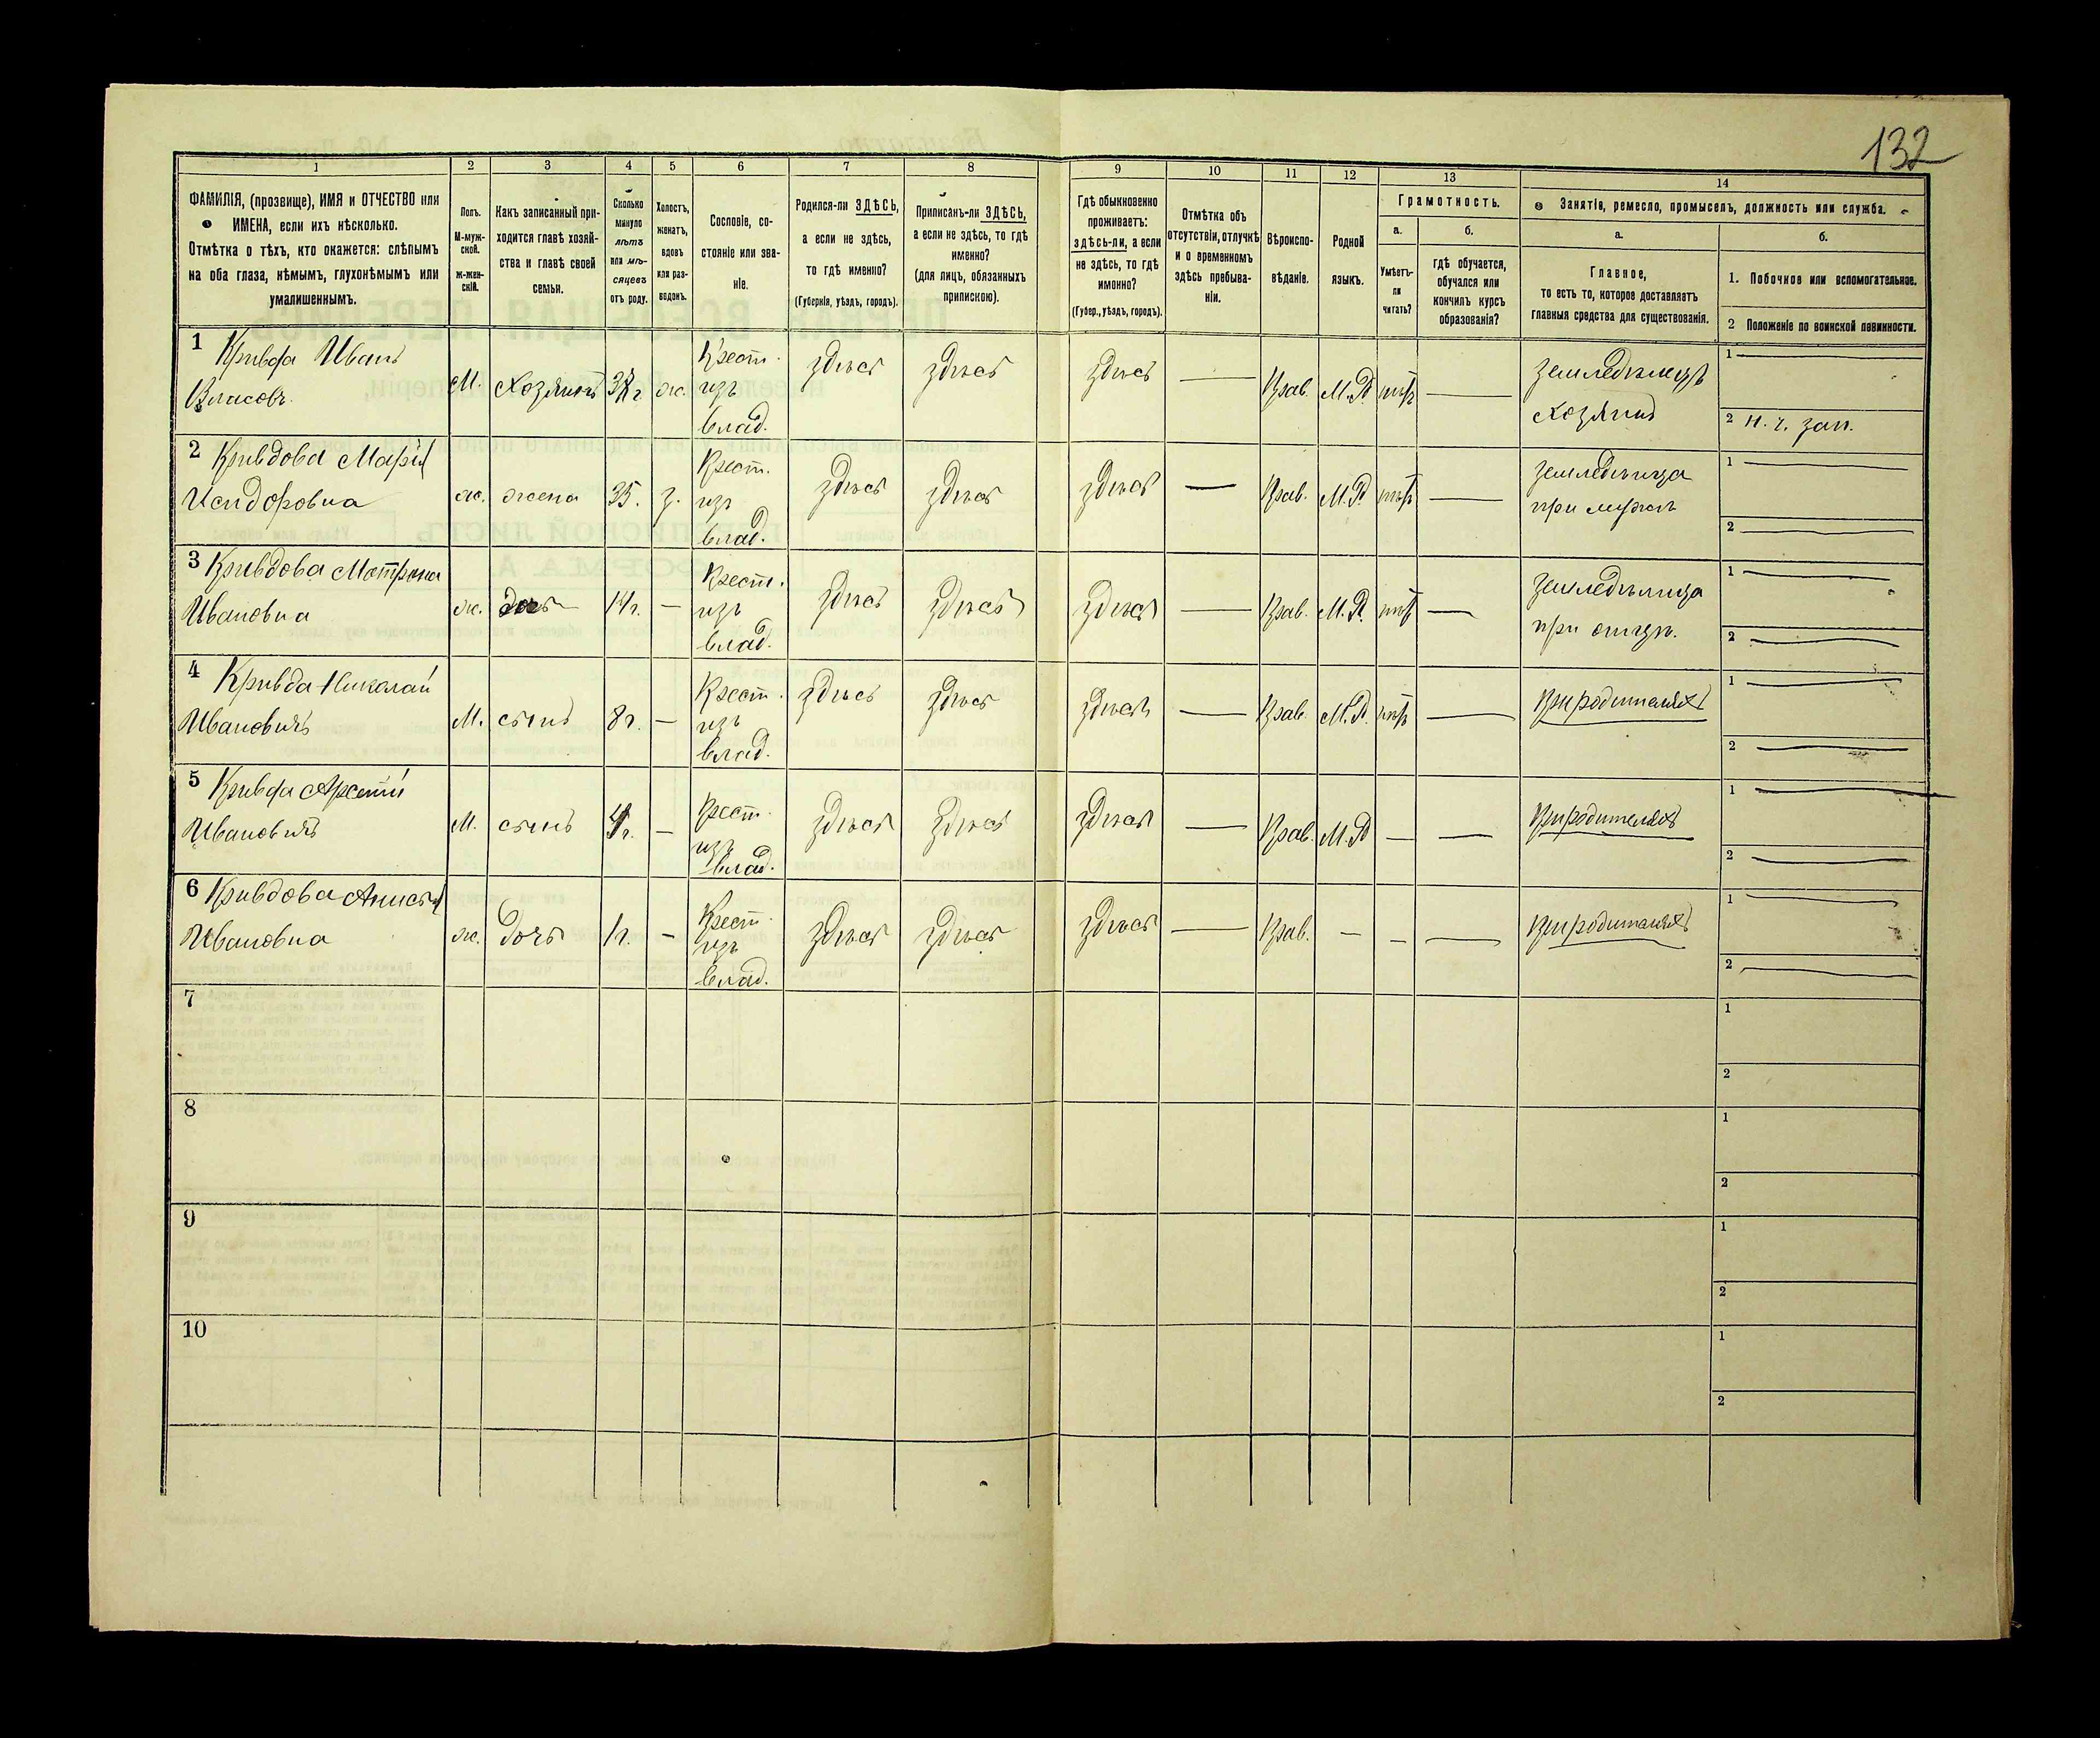 132
1 2 3 4 5 6 7 8 9 10 11 12 13 14
ФАМИЛІЯ, (прозвище), ИМЯ и ОТЧЕСТВО или
ИМЕНА, если ихъ нѣсколько.
Отмѣтка о тѣхъ, кто окажется: слѣпымъ
на оба глаза, нѣмымъ, глухонѣмымъ или
умалишеннымъ.
Полъ.
М-муж-
ской.
ж-жен-
скій.
Какъ записанный при-
ходится главѣ хозяй-
ства и главѣ своей
семьи.
Сколько
минуло
лѣтъ
или мѣ-
сяцевъ
отъ роду.
Холостъ,
женатъ,
вдовъ
или раз-
веденъ.
Сословіе, со-
стояніе или зва-
ніе.
Родился-ли ЗДѢСЬ,
а если не здѣсь,
то гдѣ именно?
(Губернія, уѣздъ, городъ).
Приписанъ-ли ЗДѢСЬ,
а если не здѣсь, то гдѣ
именно?
(для лицъ, обязанныхъ
припискою).
Гдѣ обыкновенно
проживаетъ:
здѣсь-ли, а если
не здѣсь, то гдѣ
именно?
(Губер., уѣздъ, городъ).
Отмѣтка объ
отсутствіи, отлучкѣ
и о временномъ
здѣсь пребыва-
ніи.
Вѣроиспо-
вѣданіе.
Родной
языкъ.
Грамотность.
а.
Умѣетъ-
ли
читать?
б.
гдѣ обучается,
обучался или
кончилъ курсъ
образованія?
Занятіе, ремесло, промыселъ, должность или служба.
а.
Главное,
то есть то, которое доставляетъ
главныя средства для существованія.
б.
1. Побочное или вспомогательное.
2 Положеніе по воинской повинности.
1 Кривда Иванъ Крест. здѣсь здѣсь здѣсь — земледѣлецъ 1 —
Власовъ М. Хозяинъ ж. изъ Прав. М.Р. нѣтъ — Хозяинъ
влад. 2 н. ч. зап.
2 Кривдова Марія Крест. здѣсь здѣсь здѣсь — 1 —
Исидоровна ж. жена 35. з. изъ Прав. М.Р. нѣтъ — при мужѣ
влад. 2 —
3 Кривдова Мотрона Крест. здѣсь здѣсь здѣсь — земледѣлица 1 —
Ивановна ж. дочь 14 г. — изъ Прав. М.Р. нѣтъ — при отцѣ.
влад. 2 —
4 Кривда Николай Крест. здѣсь здѣсь здѣсь — при родителяхъ 1 —
Ивановичъ М. сынъ 8 г. — изъ Прав. М.Р. нѣтъ —
влад. 2 —
5 Кривда Арсеній Крест. здѣсь здѣсь здѣсь — при родителяхъ 1 —
Ивановичъ М. сынъ — изъ Прав. М.Р. — —
влад. 2 —
6 Кривдова Анисья Крест. здѣсь здѣсь здѣсь — при родителяхъ 1 —
Ивановна ж. дочь 1 г. — изъ Прав. — — —
влад. 2 —
7 1
2
8 1
2
9 1
2
10 1
2